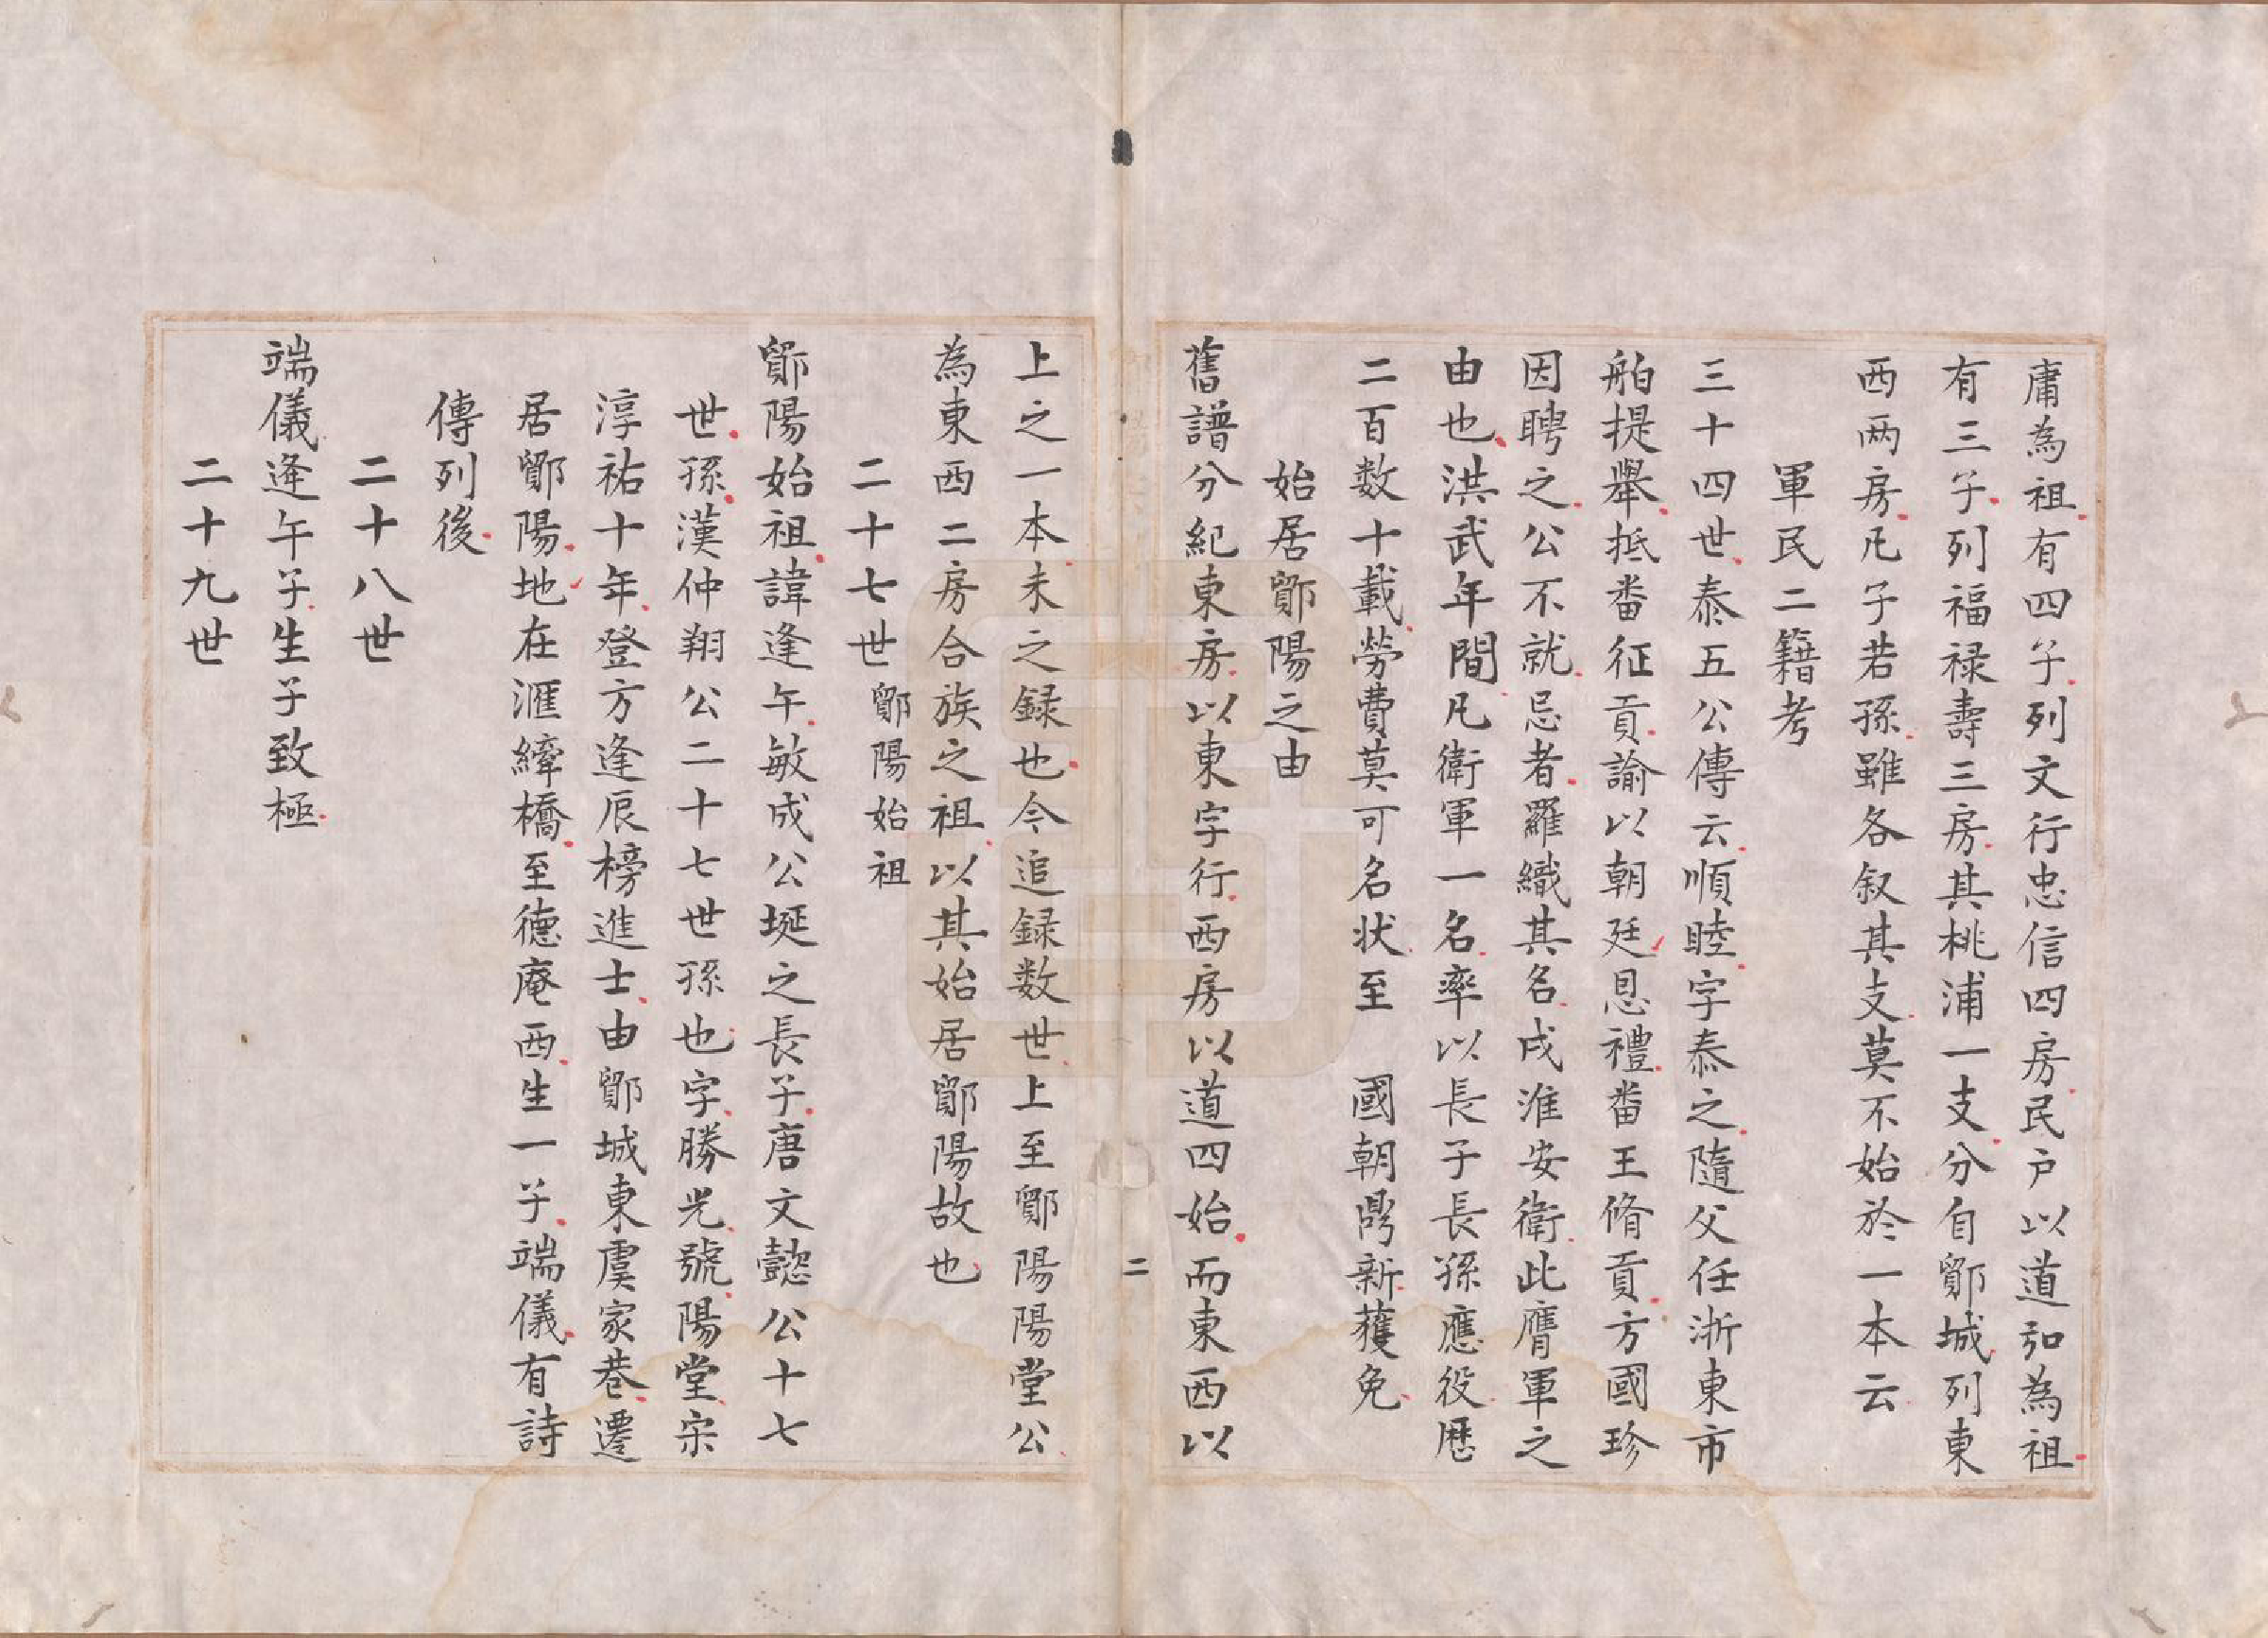 庸為祖有四子列文行忠信四房民户以道弘為祖
有三子列福禄壽三房其桃浦一支分自鄮城列東
西两房凡子若孫雖各叙其支莫不始於一本云
軍民二籍考
三十四世泰五公傳云順睦字泰之隨父任浙東市
舶提舉抵番征貢諭以朝廷恩禮番王脩貢方國珍
因聘之公不就忌者羅織其名戌淮安衛此膺軍之
由也洪武年間凡衛軍一名率以長子長孫應役歴
二百数十載勞費莫可名状至 國朝鼎新獲免
始居鄮陽之由
舊譜分紀東房以東字行西房以道四始而東西以
二
上之一本未之録也今追録数世上至鄮陽陽堂公
為東西二房合族之祖以其始居鄮陽故也
二十七世鄮陽始祖
鄮陽始祖諱逢午敏成公埏之長子唐文懿公十七
世孫漢仲翔公二十七世孫也字勝光號陽堂宋
淳祐十年登方逢辰榜進士由鄮城東虞家巷遷
居鄮陽地在滙縴橋至德庵西生一子端儀有詩
傳列後
二十八世
端儀逄午子生子致極
二十九世